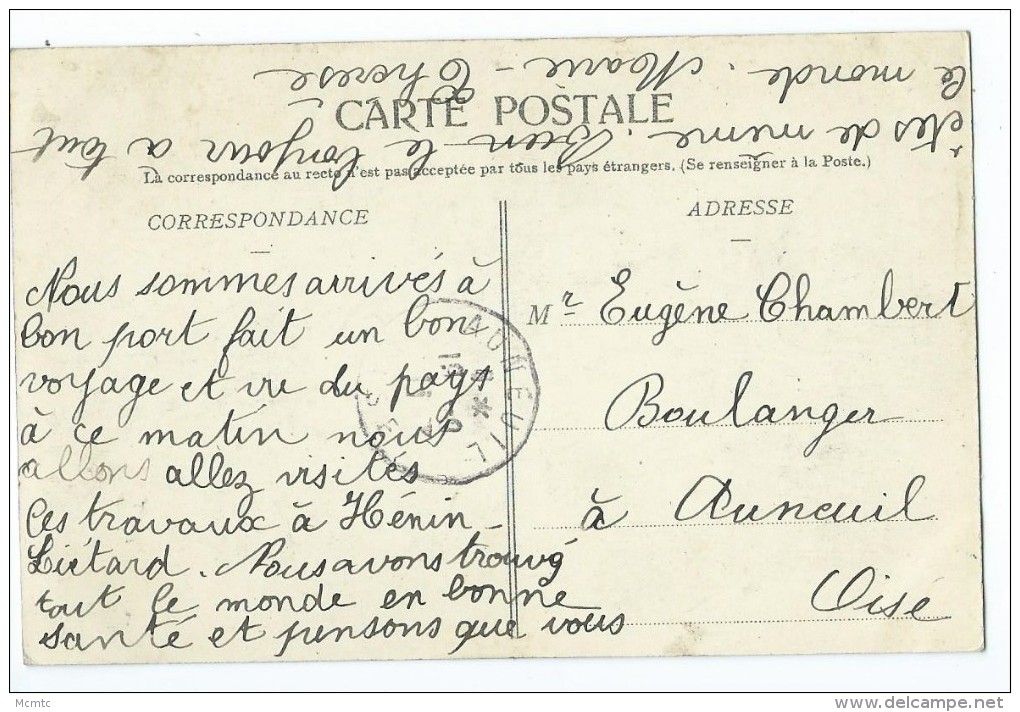 CARTE POSTALE
La correspondance au recto n'est pas acceptée par tous les pays étrangers. (Se renseigner à la Poste.)
CORRESPONDANCE
Nous sommes arrivés à
bon port fait un bon
voyage et vu du pays
à ce matin nous
allons allez visités
les travaux à Hénin-
Liétard. Nous avons trouvé
tout le monde en bonne
santé et pensons que vous
êtes de même. Bien le bonjour a tout
le monde. Marie-Thérèse
ADRESSE
Mr Eugène Chambert
Boulanger
à Auneuil
Oise
AUNEUIL
Mcmtc
delcampe.net